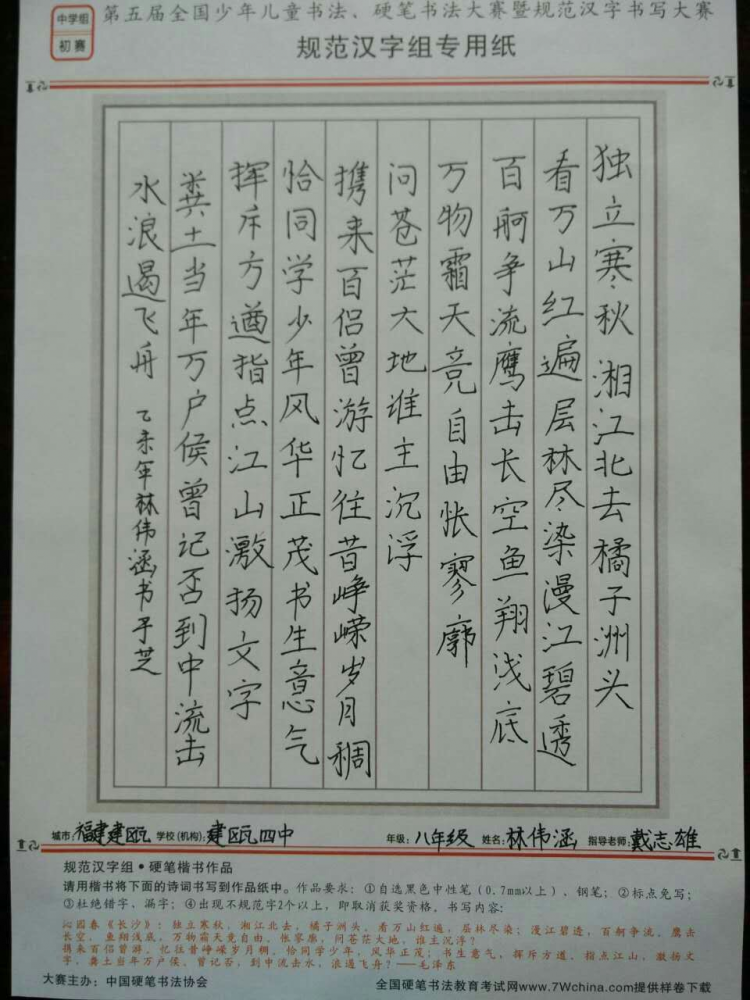 中学组
初赛
第五届全国少年儿童书法、硬笔书法大赛暨规范汉字书写大赛
规范汉字组专用纸
独立寒秋湘江北去橘子洲头
看万山红遍层林尽染漫江碧透
百舸争流鹰击长空鱼翔浅底
万物霜天竞自由怅寥廓
问苍茫大地谁主沉浮
携来百侣曾游忆往昔峥嵘岁月稠
恰同学少年风华正茂书生意气
挥斥方遒指点江山激扬文字
粪土当年万户侯曾记否到中流击
水浪遏飞舟 乙未年林伟涵书于芝
城市：福建建瓯 学校(机构)：建瓯四中 年级：八年级 姓名：林伟涵 指导老师：戴志雄
规范汉字组•硬笔楷书作品
请用楷书将下面的诗词书写到作品纸中。作品要求：①自选黑色中性笔(0.7mm以上)、钢笔；②标点免写；
③杜绝错字、漏字；④出现不规范字2个以上，即取消获奖资格。书写内容：
沁园春《长沙》：独立寒秋，湘江北去，橘子洲头。看万山红遍，层林尽染；漫江碧透，百舸争流。鹰击
长空，鱼翔浅底，万物霜天竞自由。怅寥廓，问苍茫大地，谁主沉浮？
携来百侣曾游，忆往昔峥嵘岁月稠。恰同学少年，风华正茂；书生意气，挥斥方遒。指点江山，激扬文
字，粪土当年万户侯。曾记否，到中流击水，浪遏飞舟？——毛泽东
大赛主办：中国硬笔书法协会 全国硬笔书法教育考试网www.7Wchina.com提供样卷下载